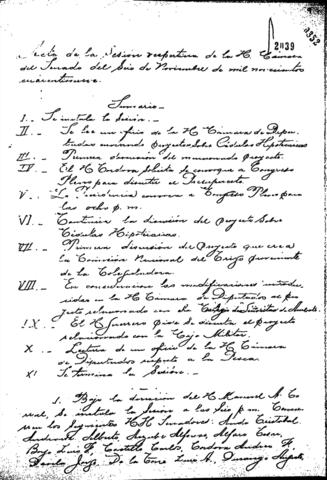 2039
Acta de la Sesión vespertina de la H. Cámara
del Senado del Seis de Noviembre de mil novecientos
cuarentinueve.
Sumario
I.- Se instala la Sesión.-
II.- Se lee un oficio de la H Cámara de Dipu-
tados enviando proyecto sobre Cédulas Hipotecarias
III.- Primera discusión del mencionado proyecto.
IV.- El H Endara solicita se convoque a Congreso
Pleno para discutir el Presupuesto.
V.- La Presidencia convoca a Congreso Pleno para
las ocho p.m.
VI.- Continúa la discusión del proyecto sobre
Cédulas Hipotecarias.
VII.- Primera discusión del proyecto que crea
la Comisión Nacional del Trigo
de la
VIII.- En consideración las modificaciones introdu-
cidas en la H Cámara de Diputados al pro-
yecto relacionado con el Colegio de Señoritas de Ambato.
IX.- El H Guerrero pide se discuta el proyecto
relacionado con la Hoja Militar.
X.- Lectura de un oficio de la H Cámara
de Diputados respecto a la Pesca.
XI.- Se termina la Sesión.-
1.- Bajo la dirección del H Manuel A. Co-
rral, se instala la Sesión a las seis p.m. Concu-
rren los siguientes HH Senadores: Cristóbal
Andrade Alberto, Alfonso, Alfaro César,
Borja Luis F, Castillo Carlos, Córdova Andrés F,
Jorge, De la Torre Luis A, Durango